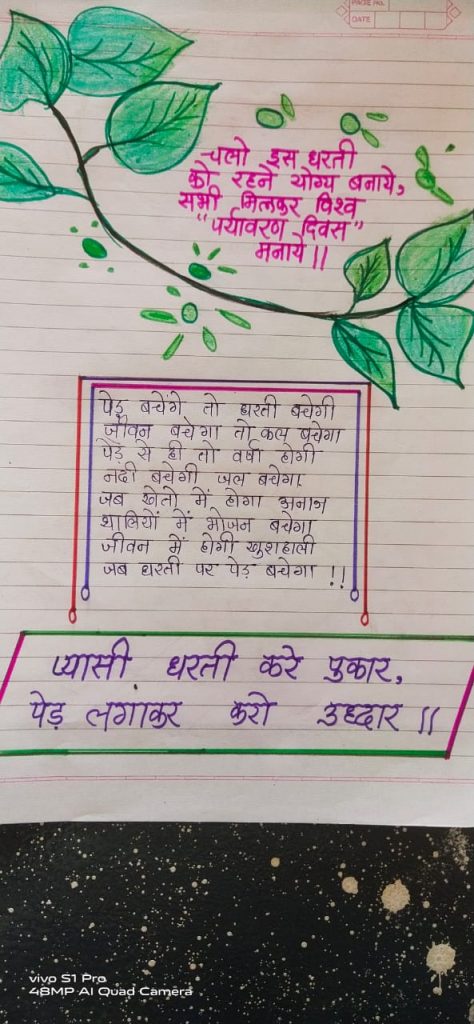 PAGE No.
DATE
चलो इस धरती
को रहने योग्य बनाये,
सभी मिलकर विश्व
"पर्यावरण दिवस"
मनाये ||
पेड़ बचेंगे तो धरती बचेगी
जीवन बचेगा तो कल बचेगा
पेड़ से ही तो वर्षा होगी
नदी बचेगी जल बचेगा
जब खेतो में होगा अनाज
थालियों में भोजन बचेगा
जीवन में होगी खुशहाली
जब धरती पर पेड़ बचेगा !!
प्यासी धरती करे पुकार,
पेड़ लगाकर करो उध्दार ||
vivo S1 Pro
48MP AI Quad Camera